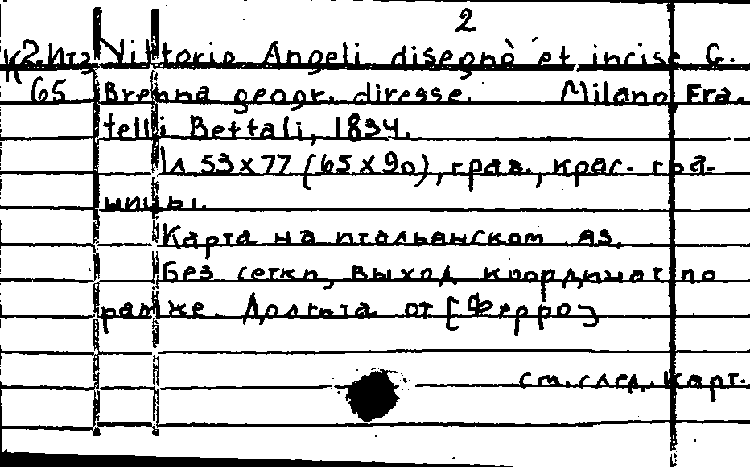 2
К2.Ит3 Vittorio Angeli disegnò et incise G.
65 Brenna geogr. diresse. Milano, Fra-
telli Bettali, 1834.
1л 53x77 (65x90), грав., крас. гра-
ницы.
Карта на итальянском яз.
Без сетки, выход координат по
рамке. Долгота от [Ферро]
см. след. карт.